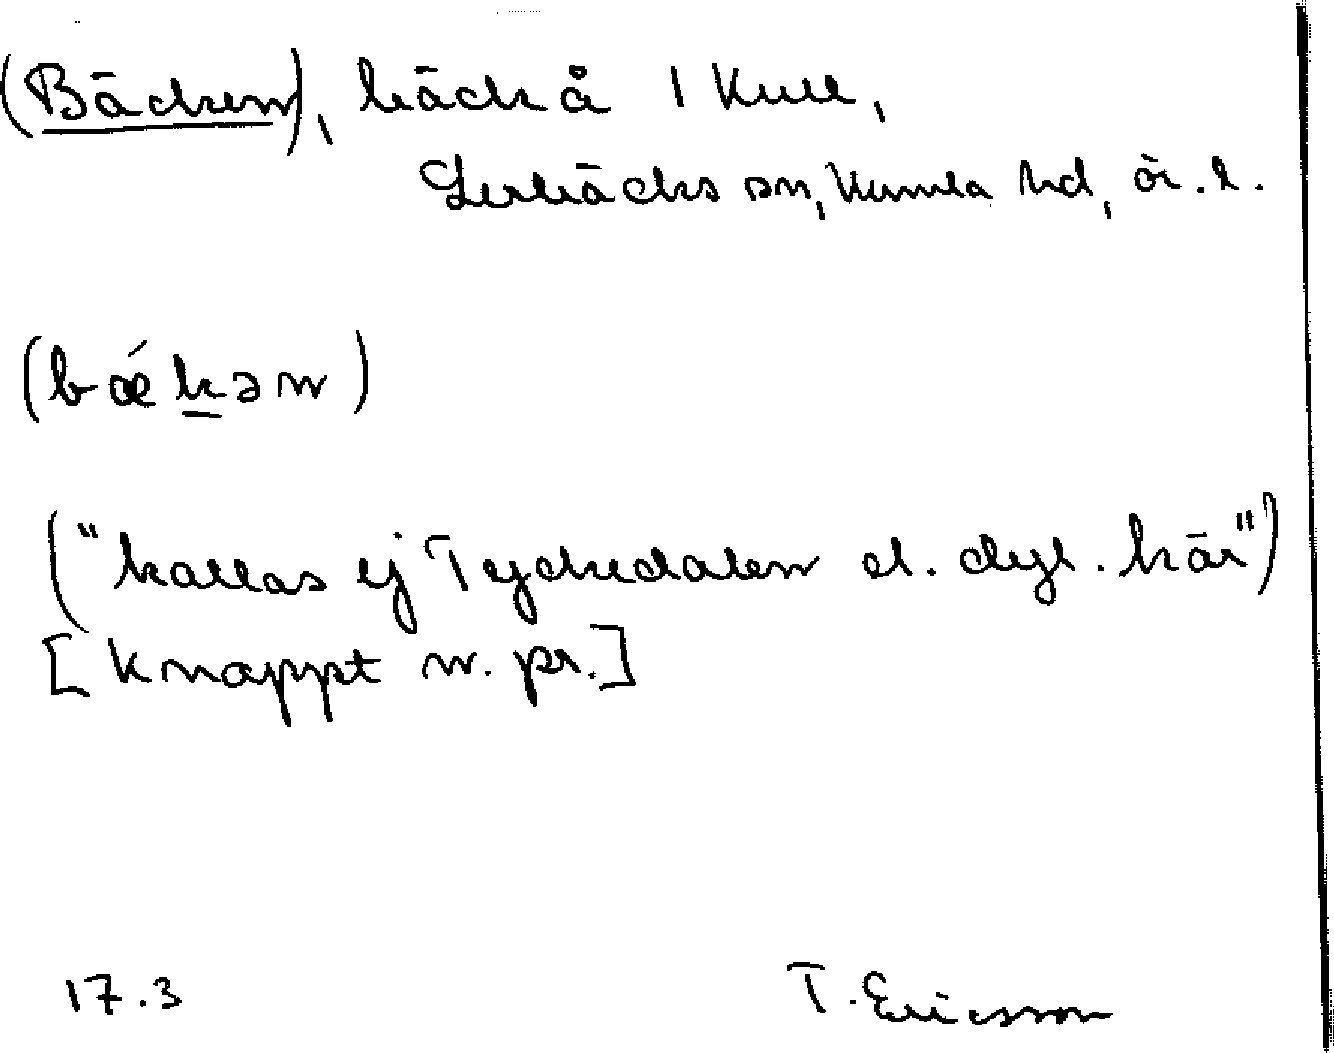 (Bäcken), bäck å 1 Kull,
Lerbäcks sn, Kumla hd, ör. l.
(bǽkən)
("kallas ej Tyckedalen el. dyl. här")
[Knappt n. pr.]
17.3 T. Ericsson